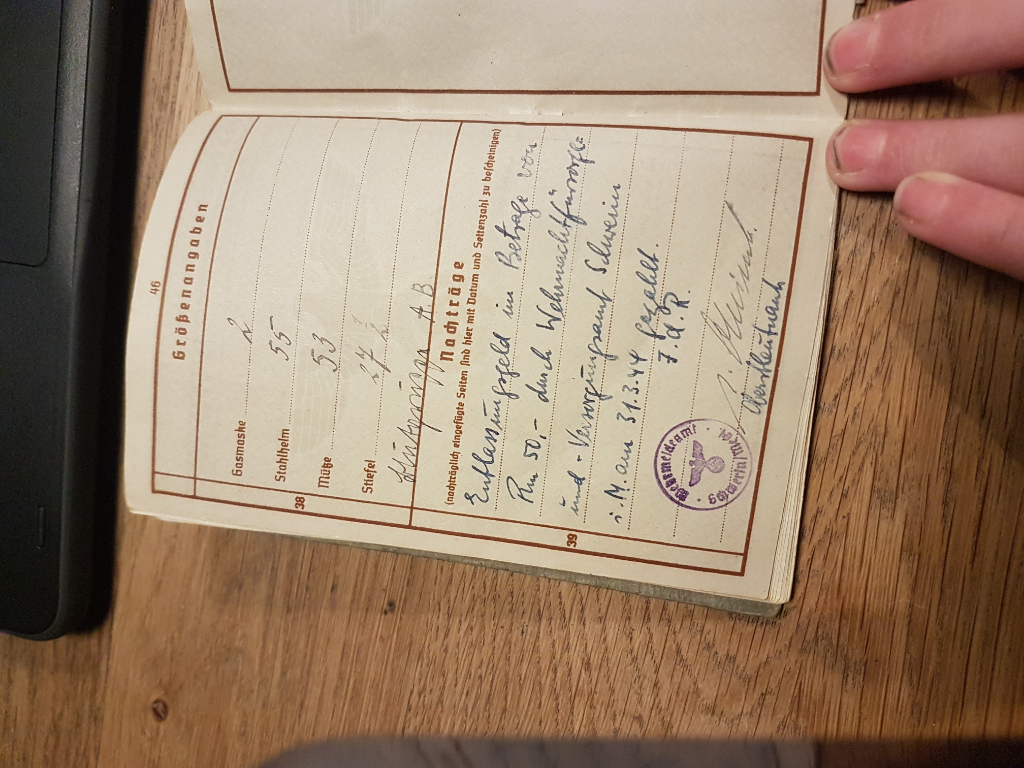 46
Größenangaben
Gasmaske 2
Stahlhelm 55
38
Mütze 53
Stiefel 27 ½
A B
Nachträge
(nachträglich eingefügte Seiten sind hier mit Datum und Seitenzahl zu bescheinigen)
Entlassungsgeld im Betrage von
Rm 50,- durch Wehrmachtfürsorge=
39
und - Versorgungsamt Schwerin
i. M. am 31.3.44 gezahlt.
F. d. R.
Wehrmeldeamt
Schwerin